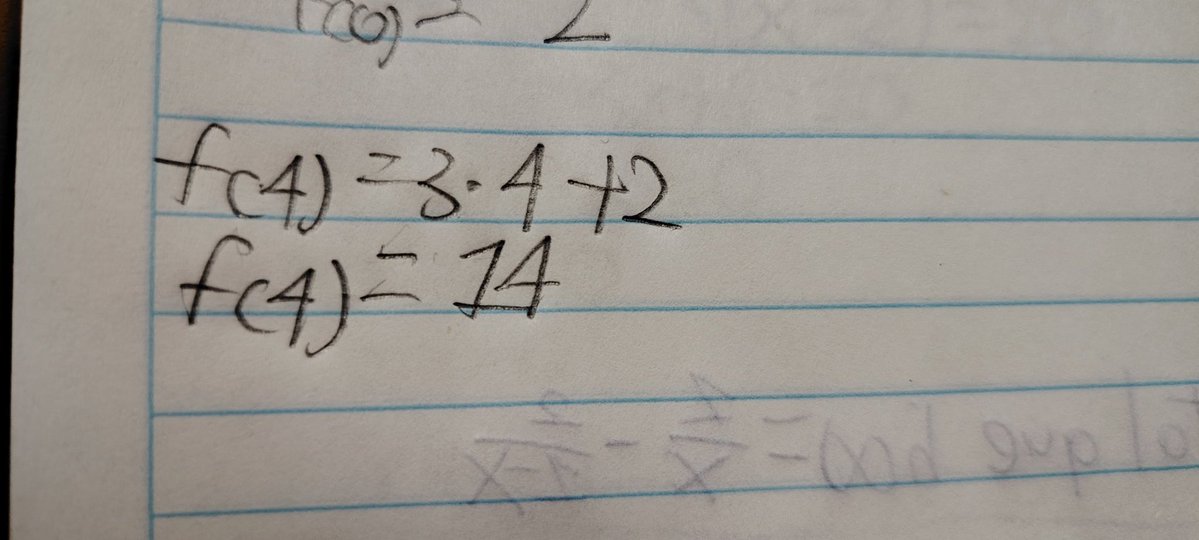 f(0) = 2
f(4) = 3·4 + 2
f(4) = 14